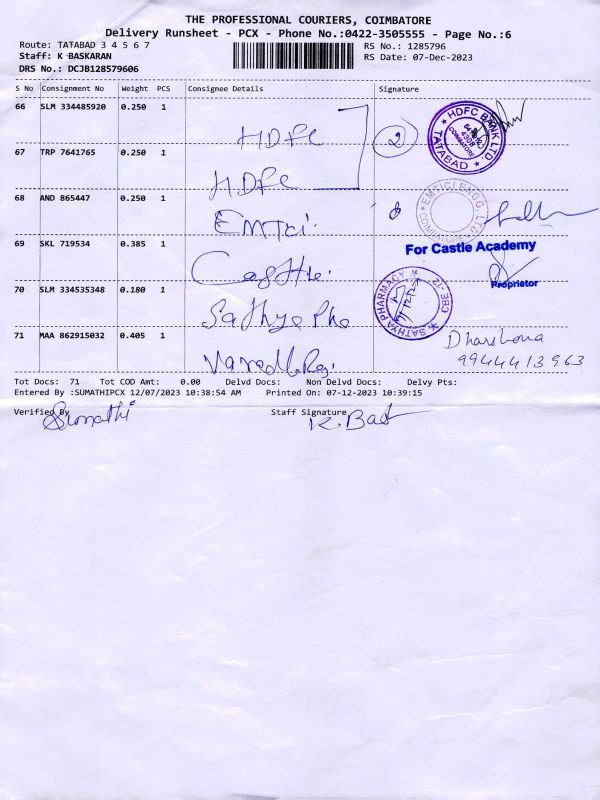 THE PROFESSIONAL COURIERS, COIMBATORE
Delivery Runsheet - PCX - Phone No.:0422-3505555 - Page No.:6
Route: TATABAD 3 4 5 6 7
RS No.: 1285796
Staff: K BASKARAN
RS Date: 07-Dec-2023
DRS No.: DCJB128579606
S No Consignment No Weight PCS Consignee Details Signature
66 SLM 334485920 0.250 1 HDFC
2
HDFC BANK LTD TATABAD COIMBATORE
67 TRP 7641765 0.250 1 HDFC
68 AND 865447 0.250 1 EMTCi.
69 SKL 719534 0.385 1
For Castle Academy
Proprietor
70 SLM 334535348 0.180 1 Sathya Pha
SATHYA PHARMACY CBE-12
71 MAA 862915032 0.405 1
Dharshona
9944413963
Tot Docs: 71 Tot COD Amt: 0.00 Delvd Docs: Non Delvd Docs: Delvy Pts:
Entered By :SUMATHIPCX 12/07/2023 10:38:54 AM Printed On: 07-12-2023 10:39:15
Verified By Sumathi Staff Signature K. Bas